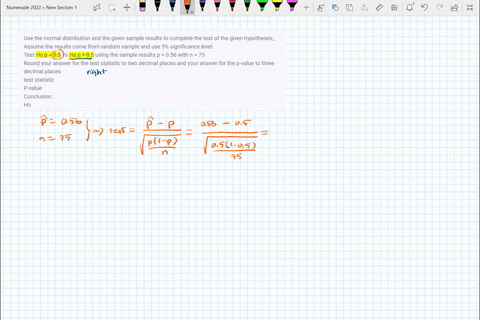 Numerade 2022 » New Section 1
Use the normal distribution and the given sample results to complete the test of the given hypotheses,_
Assume the results come from random sample and use 5% significance level.
Test Ho:p = 0.5 vs Ha p > 0.5 using the sample results p = 0.56 with n = 75
Round your answer for the test statistic to two decimal places and your answer for the p-value to three
decimal places
right
test statistic
P-value
Conclusion:
Ho
p̂ = 0.56
n = 75
⇒ test = (p̂ - p) / √(p(1-p)/n) = (0.56 - 0.5) / √(0.5(1-0.5)/75) =